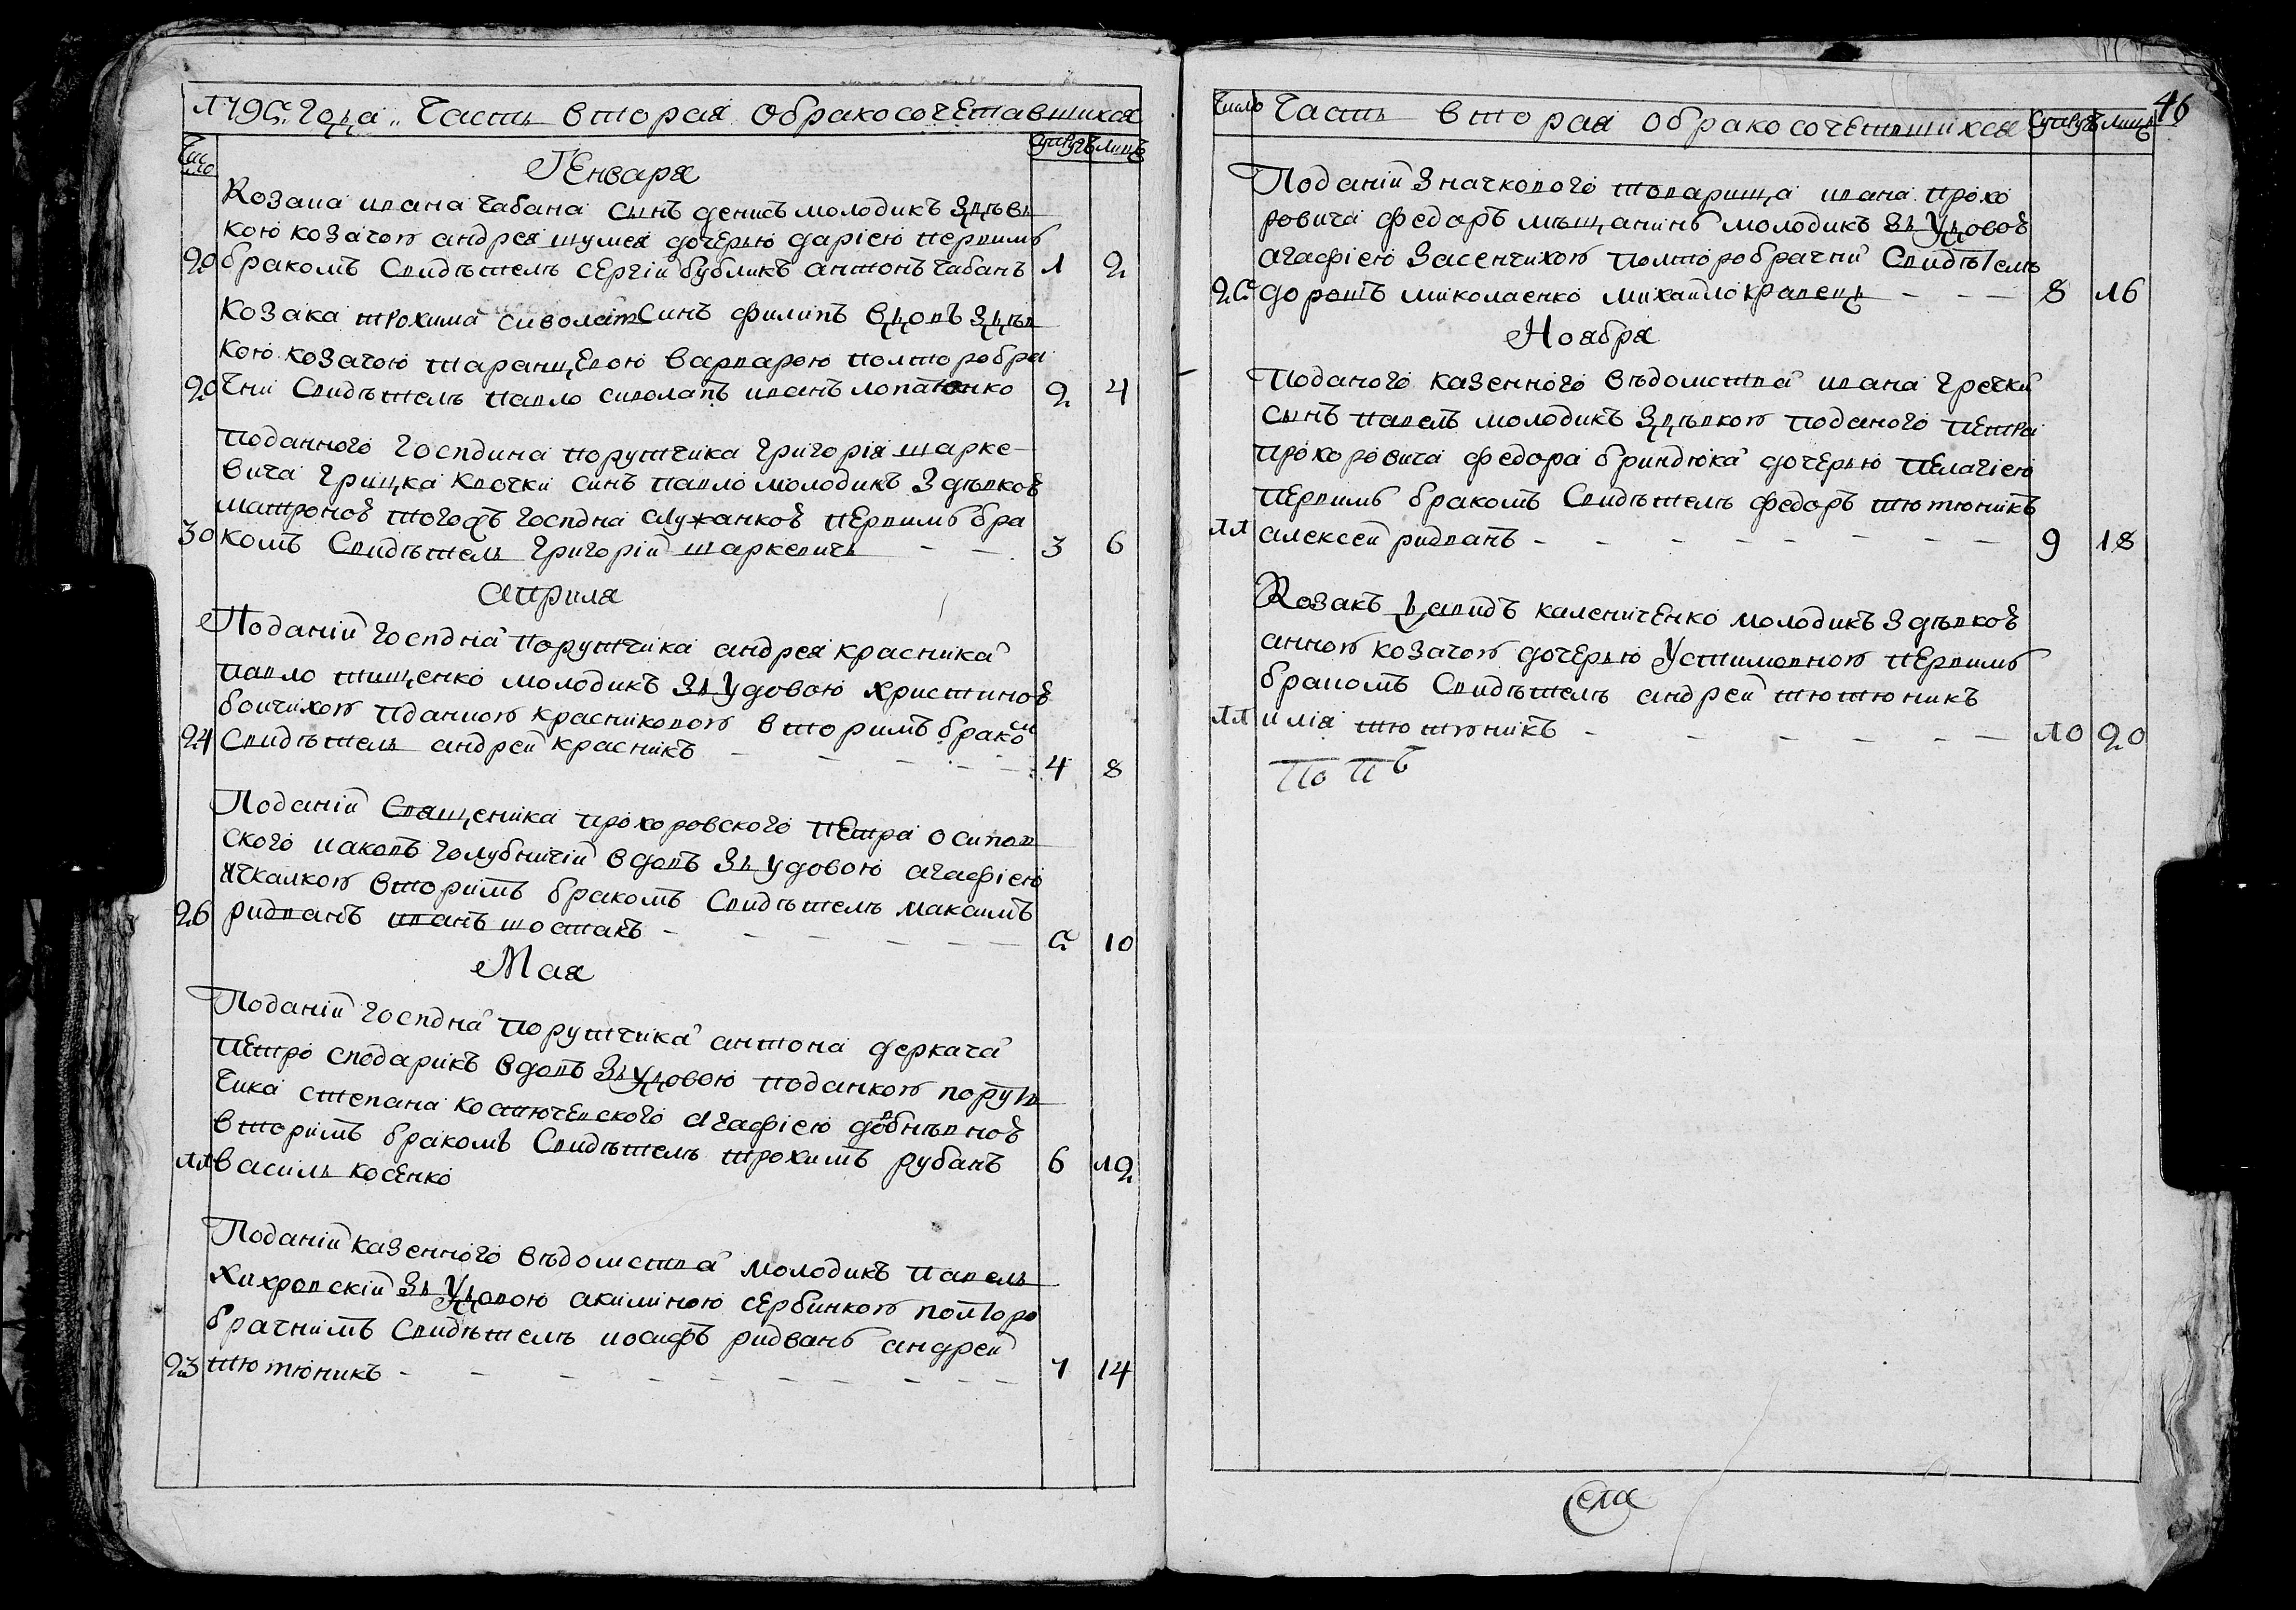 1795 Года Часть вторая о бракосочетавшихся
Число
супругъ лицъ
Генваря
Козака ивана чабана сынъ денисъ молодикъ здѣв
кою козачою андрея шумея дочерью дарією первимъ
20 бракомъ Свидѣтель сергій бубликъ антонъ чабанъ 1 2
Козака трохима сиволапа синъ филипъ вдовъ здѣв
кою козачою таранцевою варварою полторобра
20 чни Свидѣтель павло сиволапъ иванъ лопатенко 2 4
Поданного Господина порутчика григорія шарке-
вича грицка клочки синъ павло молодикъ Здѣвкоѣ
матроноѣ тогожъ госпдна служанкоѣ первимъ бра
30 комъ Свидѣтель григорій шаркевичь 3 6
Априля
Поданій госпдна порутчика андрея красника
павло тищенко молодикъ Зъ удовою христиноѣ
боичихою пданною красниковою вторимъ браком
24 Свидѣтель андрей красникъ 4 8
Поданій Священика прохоровского петра осипов
ского иаковъ голубничій вдовъ Зъ удовою агафією
ячкалкою вторимъ бракомъ Свидѣтель максимъ
26 ридванъ иванъ шостакъ 5 10
Мая
Поданій госпдна порутчика антона деркача
петро сподарикъ вдовъ Зъ удовою поданкою порут
чика степана костючевского агафією довбнѣвноѣ
вторимъ бракомъ Свидѣтель трохимъ рубанъ 6 12
11 василь косенко
Поданій казенного вѣдомства молодикъ павель
хихровскій Зъ Удовою акилиною сербинкою полторо
брачнимъ Свидѣтель иосифъ ридванъ андрей
23 тютюникъ 7 14
46
Число Часть вторая о бракосочетавшихся супругъ лицъ
Поданій Значкового товарища ивана прохо
ровича федоръ мѣщанинъ молодикъ Зъ Удовоѣ
агафією Засенчихою полторобрачни Свидѣтель
25 дорошъ миколаенко михайло кравець 8 16
Ноября
Поданого казенного вѣдомства ивана гречки
сынъ павель молодикъ Здѣвкою поданого петра
прохоровича федора бриндюка дочерью пелагією
первимъ бракомъ Свидѣтель федоръ тютюникъ
11 алексей ридванъ 9 18
Козакъ давидъ калениченко молодикъ Здѣвкоѣ
анною козачою дочерью Устимовною первимъ
бракомъ Свидѣтель андрей тютюникъ
11 илія тютюникъ 10 20